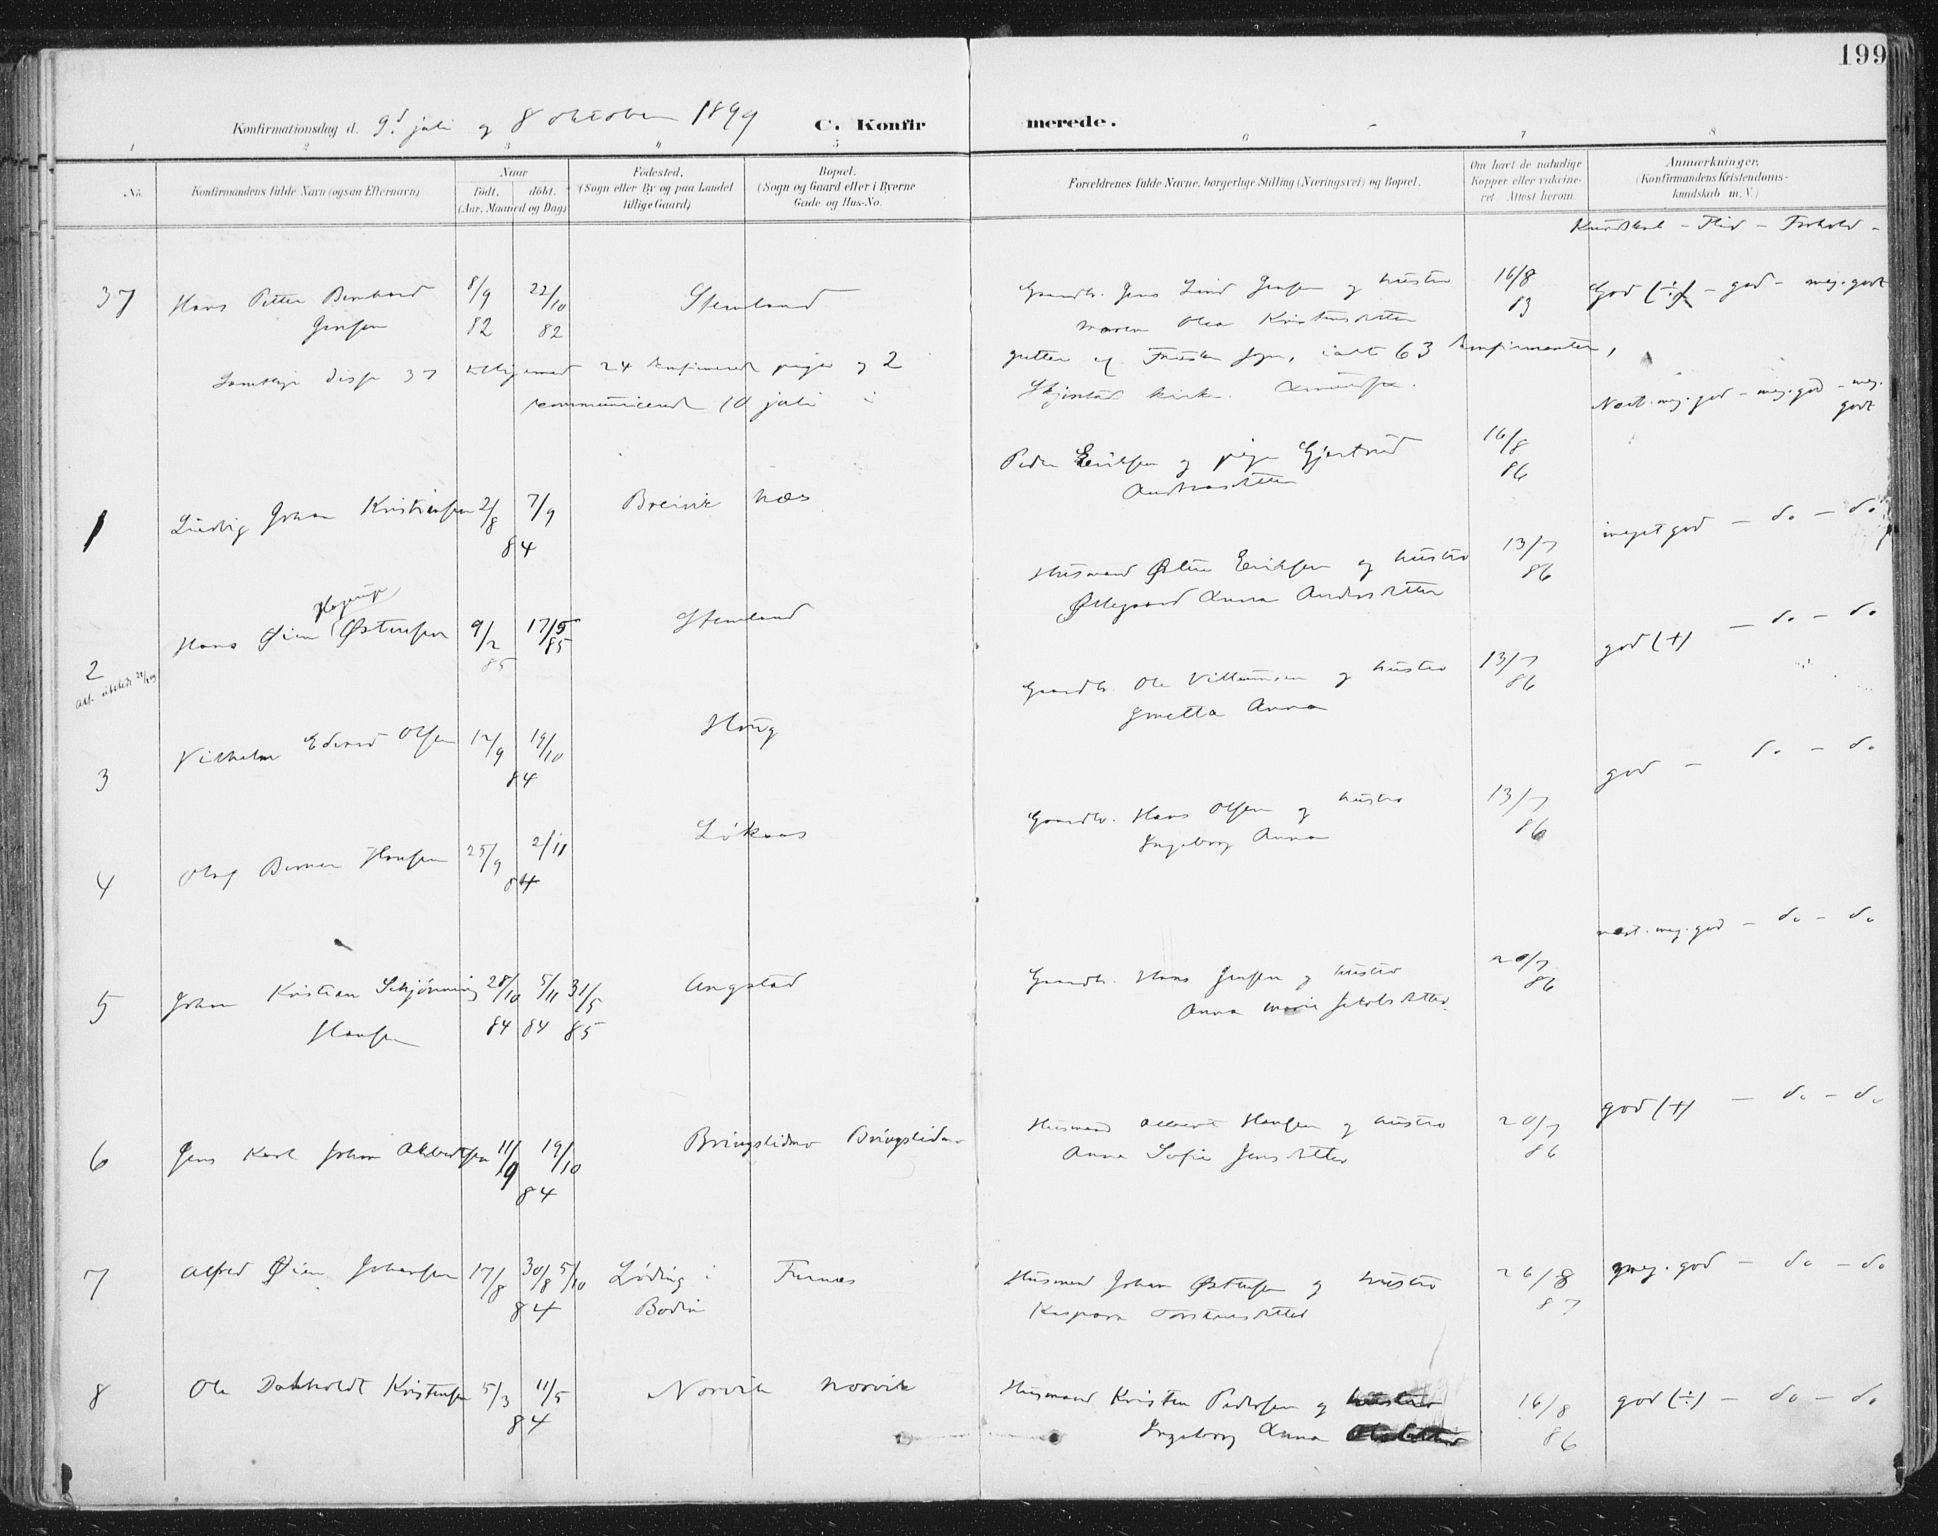 199
Konfirmationsdag d. 9d juli og 8 oktober 1899 C. Konfirmerede.
1 2 3 4 5 6 7 8
No. Konfirmandens fulde Navn (ogsaa Efternavn) Naar født. døbt. (Aar, Maaned og Dag) Födested. (Sogn eller By og paa Landet tillige Gaard) Bopæl. (Sogn og Gaard eller i Byerne Gade og Hus-No. Forældrenes fulde Navne, borgerlige Stilling (Næringsvei) og Bopæl. Om havt de naturlige Kopper eller vakcineret. Attest herom. Anmærkninger. (Konfirmandens Kristendomskundskab m. V.)
Kundskab - Flid - Forhold -
37 Hans Petter Bernhard 8/9 22/10 Stemland Gaardbr. Jens Lind Jensen og hustru 16/8 God (÷) - god - meg. godt
Jensen 82 82 Maren Olea Kristensdatter 83
Samtlige disse 37 tilligemed 24 konfirmerede piger og 2 gutter af sogn, ialt 63 konfirmanter,
kommunicerede 10 juli i Skjerstad kirke.
Nest. meg. god - meg. god - meg. godt
1 Ludvig Johan Kristensen 2/8 7/9 84 Breivik Næs Peder Eriksen og pige Gjertrud 16/8
Andreasdatter 86
meget god - do - do
2 Hans Øien Østensen 9/2 17/5 Stemland Husmand Østen Eriksen og hustru 13/7
Hagerup 85 85 Øllegaard Anna Andersdatter 86
Att. udstedt
god (+) - do - do
3 Vilhelm Edvard Olsen 12/9 19/10 84 Haug Gaardbr. Ole Villumsen og hustru 13/7
Gjretta Anna 86
god - do - do
4 Olaf Berner Hansen 25/9 2/11 84 Løkaas Gaardbr. Hans Olsen og hustru 13/7
Ingeborg Anna 86
nest. meg. god - do - do
5 Johan Kristian Schjønning 28/10 5/11 31/5 Angstad Gaardbr. Hans Jensen og hustru 20/7
Hansen 84 84 85 Anna Marie Jakobsdatter 86
god (+) - do - do
6 Jens Karl Johan Albertsen 11/9 19/10 84 Bringslidmo Bringslidmo Husmand Albert Hansen og hustru 20/7
Anna Sofie Jensdatter 86
7 Alfred Øien Johansen 17/8 30/8 5/10 Løding i Furnes Husmand Johan Østensen og hustru 26/8 meg. god - do - do
84 Bodin Kaspara Torstensdatter 87
8 Ole Dakholdt Kristensen 5/3 11/5 Norvik Norvik Husmand Kristen Pedersen og hustru 16/8 god (÷) - do - do
84 Ingeborg Anna 86